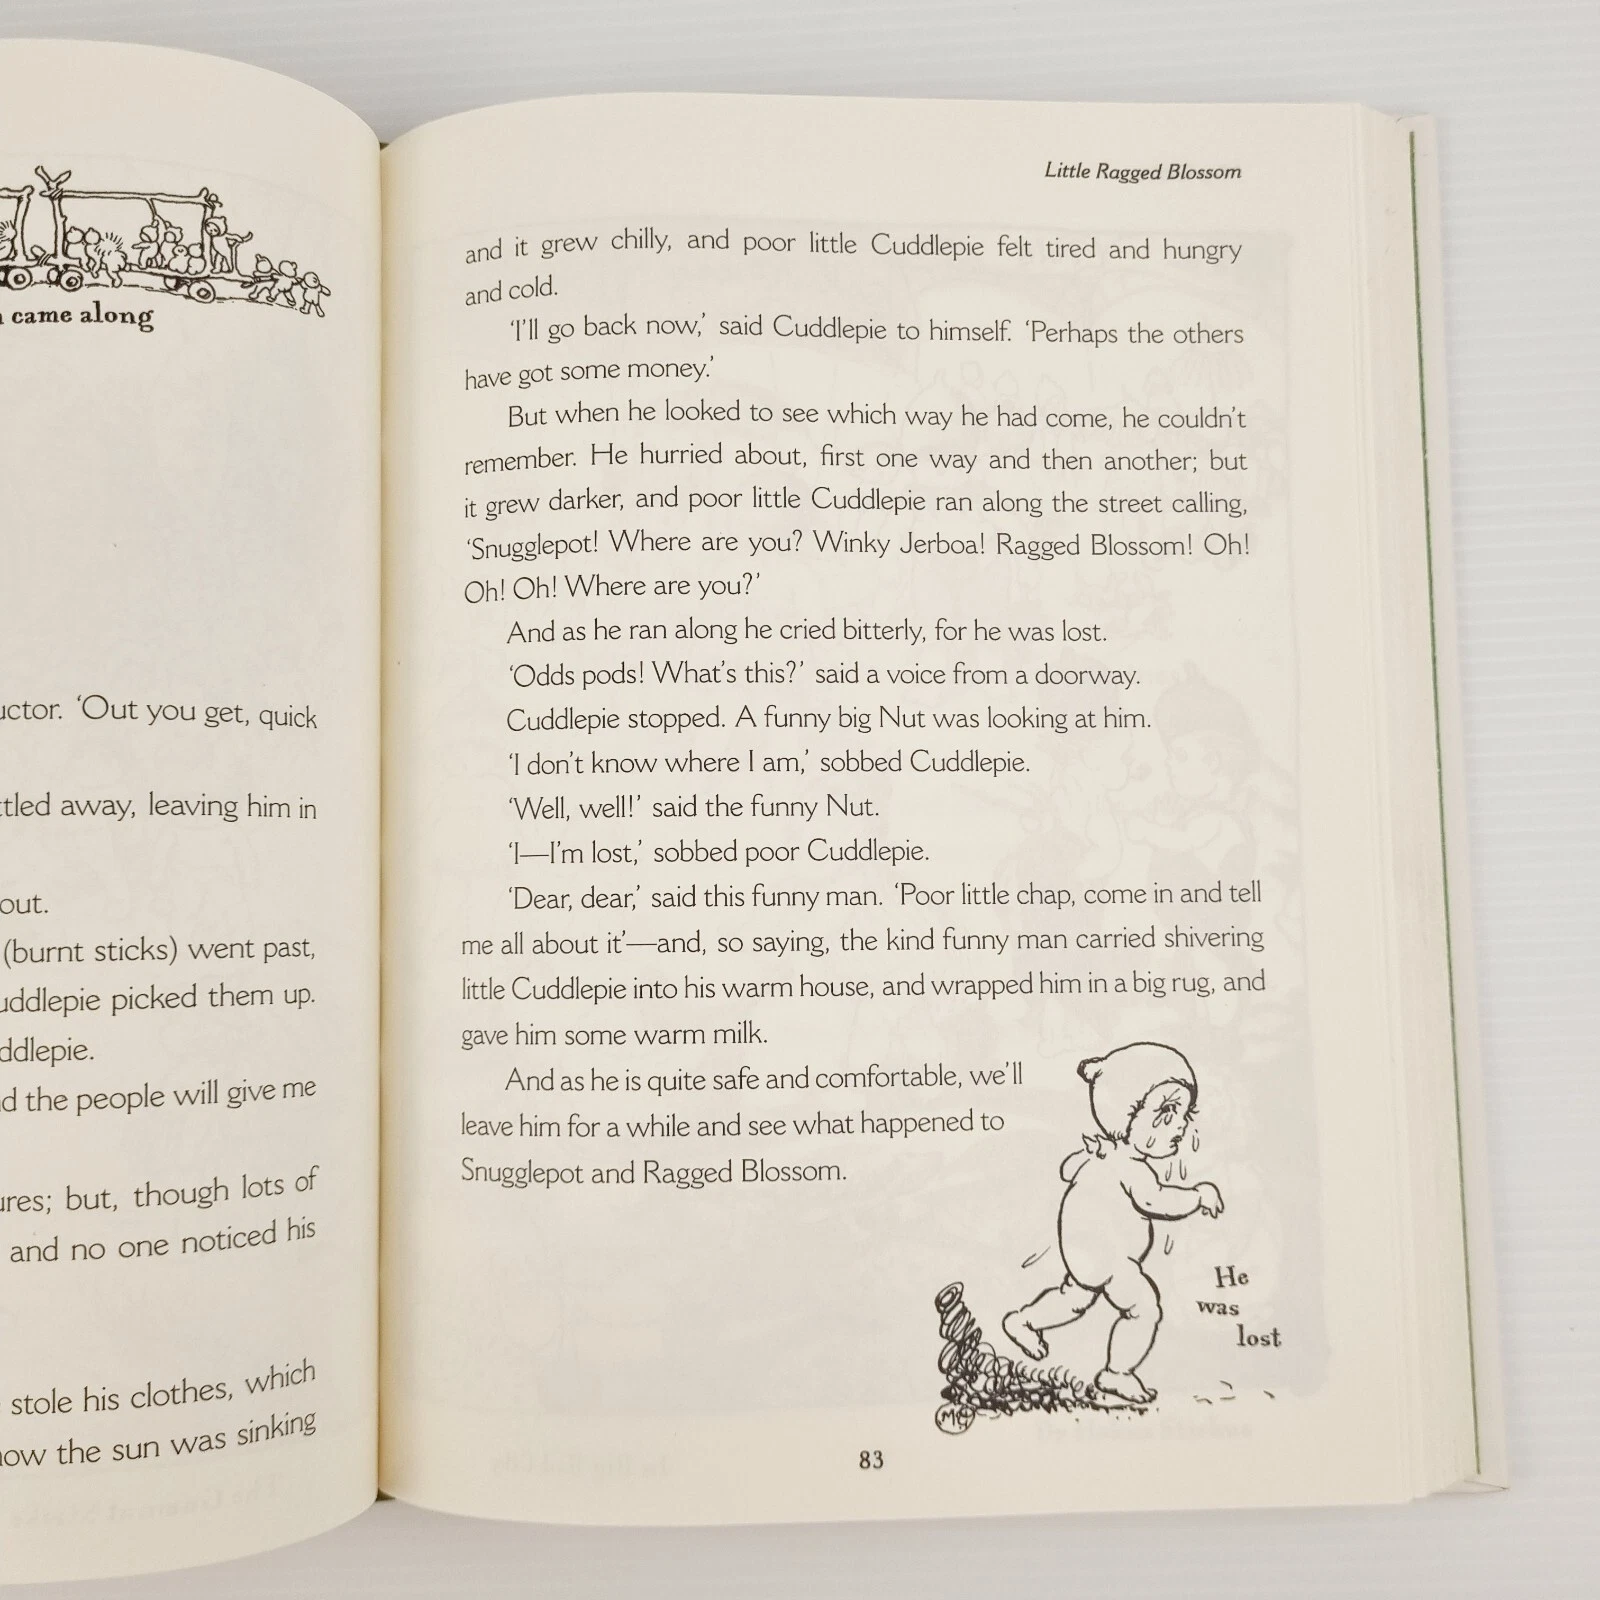 came along
uctor. 'Out you get, quick
ttled away, leaving him in
out.
(burnt sticks) went past,
uddlepie picked them up.
ddlepie.
d the people will give me
ures; but, though lots of
and no one noticed his
stole his clothes, which
now the sun was sinking
Little Ragged Blossom
and it grew chilly, and poor little Cuddlepie felt tired and hungry
and cold.
'I'll go back now,' said Cuddlepie to himself. 'Perhaps the others
have got some money.'
But when he looked to see which way he had come, he couldn't
remember. He hurried about, first one way and then another; but
it grew darker, and poor little Cuddlepie ran along the street calling,
'Snugglepot! Where are you? Winky Jerboa! Ragged Blossom! Oh!
Oh! Oh! Where are you?'
And as he ran along he cried bitterly, for he was lost.
'Odds pods! What's this?' said a voice from a doorway.
Cuddlepie stopped. A funny big Nut was looking at him.
'I don't know where I am,' sobbed Cuddlepie.
'Well, well!' said the funny Nut.
'I—I'm lost,' sobbed poor Cuddlepie.
'Dear, dear,' said this funny man. 'Poor little chap, come in and tell
me all about it'—and, so saying, the kind funny man carried shivering
little Cuddlepie into his warm house, and wrapped him in a big rug, and
gave him some warm milk.
And as he is quite safe and comfortable, we'll
leave him for a while and see what happened to
Snugglepot and Ragged Blossom.
He
was
lost
MG
83